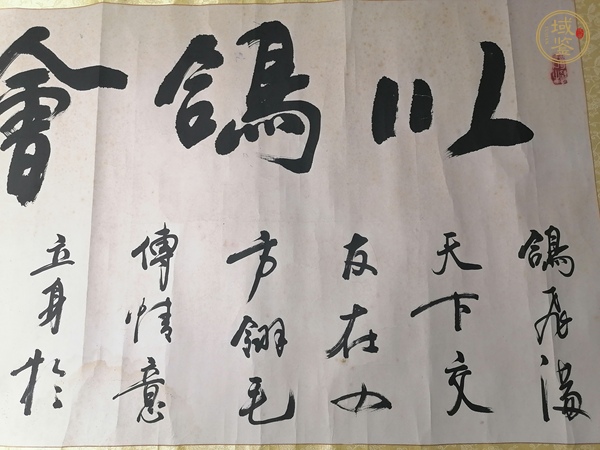 以鴿會
鴿滿
天下交
友在四
方翎毛
傳情意
立身於
域鉴